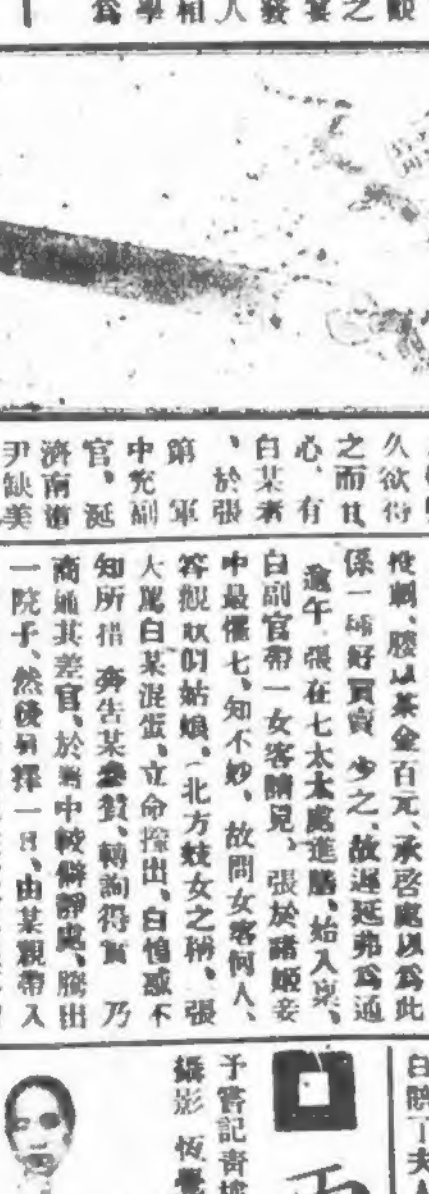 觀
之
宴
發
人
相
學
爲
久欲得
之而
心、有
白某者
、於張
第　軍
中充副
官、涎
濟南道
尹缺美
投刺、媵以茶金百元、承啓處以爲此
係一好買賣　少之、故遲延弗爲通
逾午、張在七太太處進膳、始入稟、
白副官帶一女客請見、張於諸姬妾
中最懼七、知不妙、故問女客何人、
答觀姑娘、（北方妓女之稱、張
大罵白某混蛋、立命攆出、白惶惑不
知所措　奔告某參贊、轉詢得實　乃
商通其差官、於署中較僻靜處、騰出
一院子、然後另擇一日、由某親帶入
白
丁夫
予嘗記靑
攝影　恆